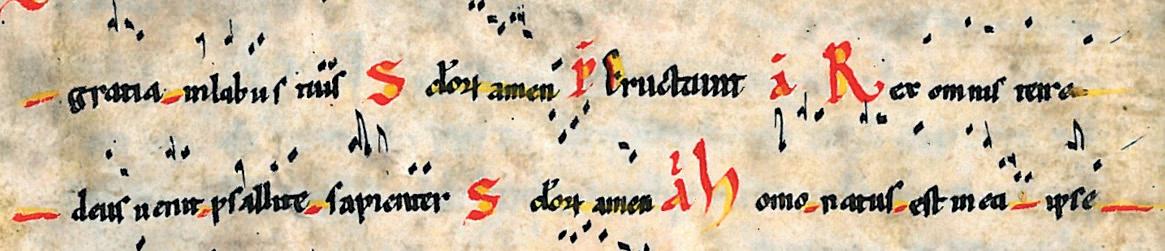 gratia in labiis tuis S dorꝝ amen p̄ Eructauit a̅ Rex omnis terre
deus uenit psallite sapienter S dorꝝ amen a̅ homo natus est in ea ipse